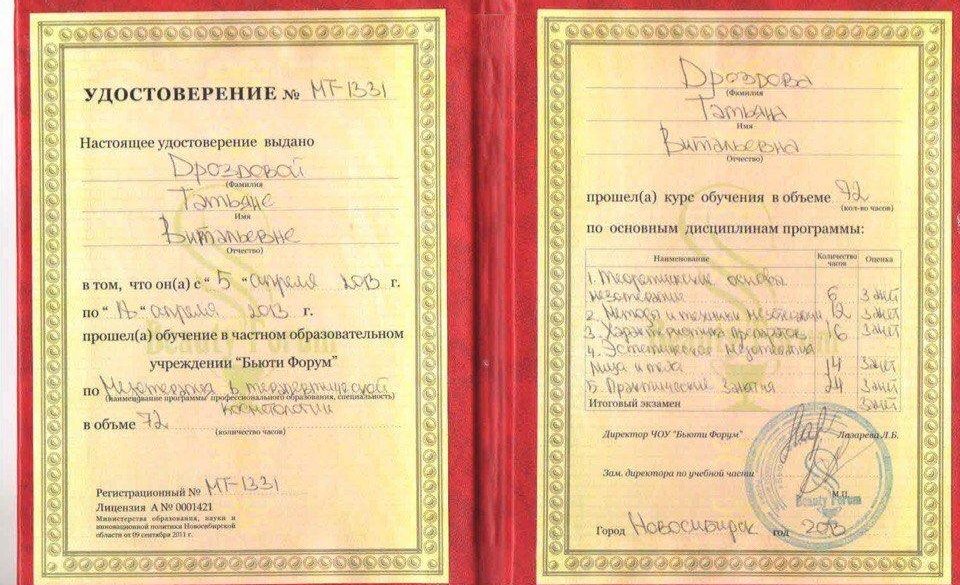 УДОСТОВЕРЕНИЕ № МТ-1331
Настоящее удостоверение выдано
Дроздовой
(Фамилия
Татьяне
Имя
Витальевне
Отчество)
в том, что он(а) с “ 5 “ апреля 2013 г.
по “ 17 “ апреля 2013 г.
прошел(а) обучение в частном образовательном
учреждении “Бьюти Форум”
по Мезотерапия в терапевтической
(наименование программы профессионального образования, специальность)
косметологии
в объме 72
(количество часов)
Регистрационный № МТ-1331
Лицензия А № 0001421
Министерства образования, науки и
инновационной политики Новосибирской
области от 09 сентября 2011 г.
Дроздова
(Фамилия
Татьяна
Имя
Витальевна
Отчество)
прошел(а) курс обучения в объеме 72
(кол-во часов)
по основным дисциплинам программы:
Наименование Количество часов Оценка
1. Теоретические основы
мезотерапии 6 Зачет
2. Методы и техники мезотерапии 12 Зачет
3. Характеристика препаратов 16 Зачет
4. Эстетическая мезотерапия
лица и тела 14 Зачет
5. Практические занятия 24 Зачет
Итоговый экзамен Зачет
Директор ЧОУ "Бьюти Форум" Лазарева Л.Б.
Зам. директора по учебной части
М.П.
Beauty Forum
Город Новосибирск год 2013